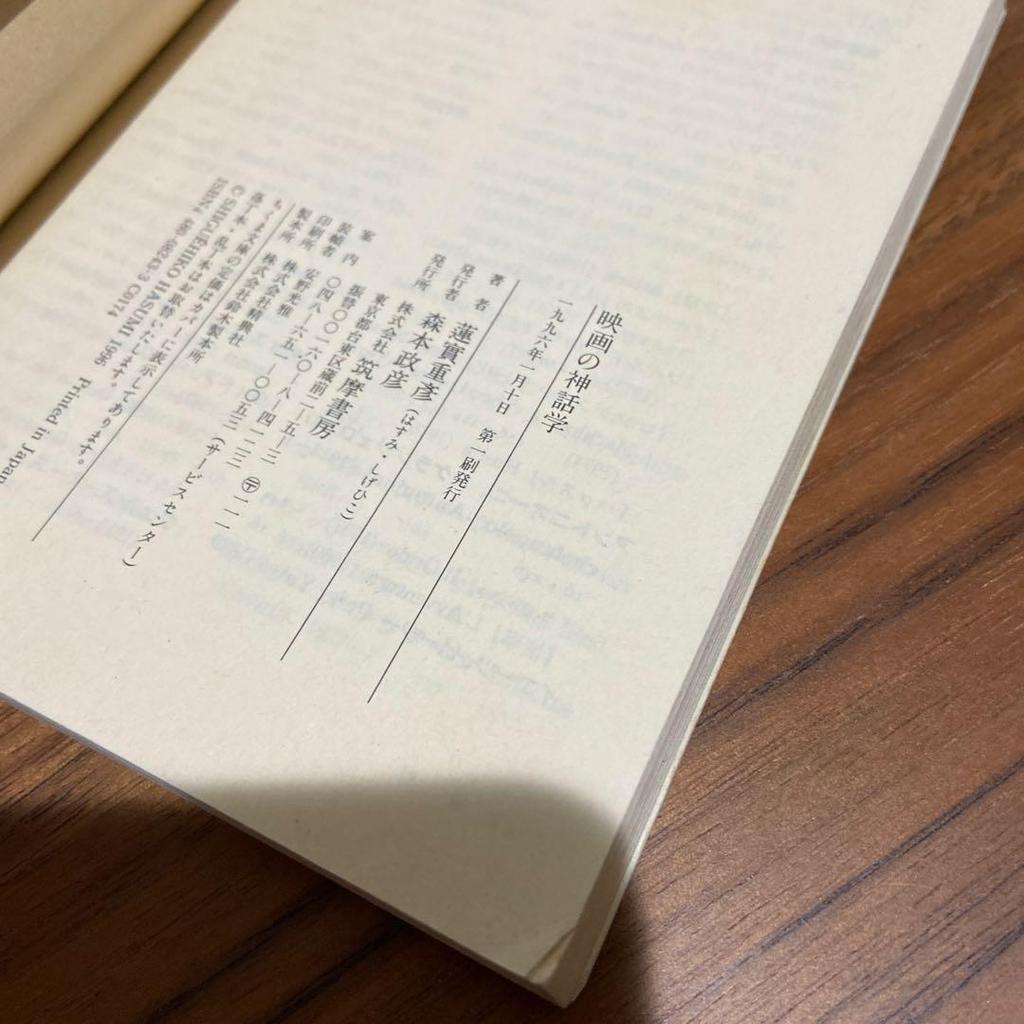 映画の神話学
一九九六年一月十日　第一刷発行
著　者　蓮實重彥(はすみ・しげひこ)
発行者　森本政彦
発行所　株式会社 筑摩書房
東京都台東区蔵前二―五―三 〒一一一
振替〇〇一六〇―八―四一二三
案　内　〇四八―六五一―〇〇五三(サービスセンター)
装幀者　安野光雅
印刷所　株式会社精興社
製本所　株式会社鈴木製本所
ちくま文庫の定価はカバーに表示してあります。
落丁本・乱丁本はお取替いたします。
© SHIGUEHIKO HASUMI 1996　Printed in Japan
ISBN4-480-　-3 C0174